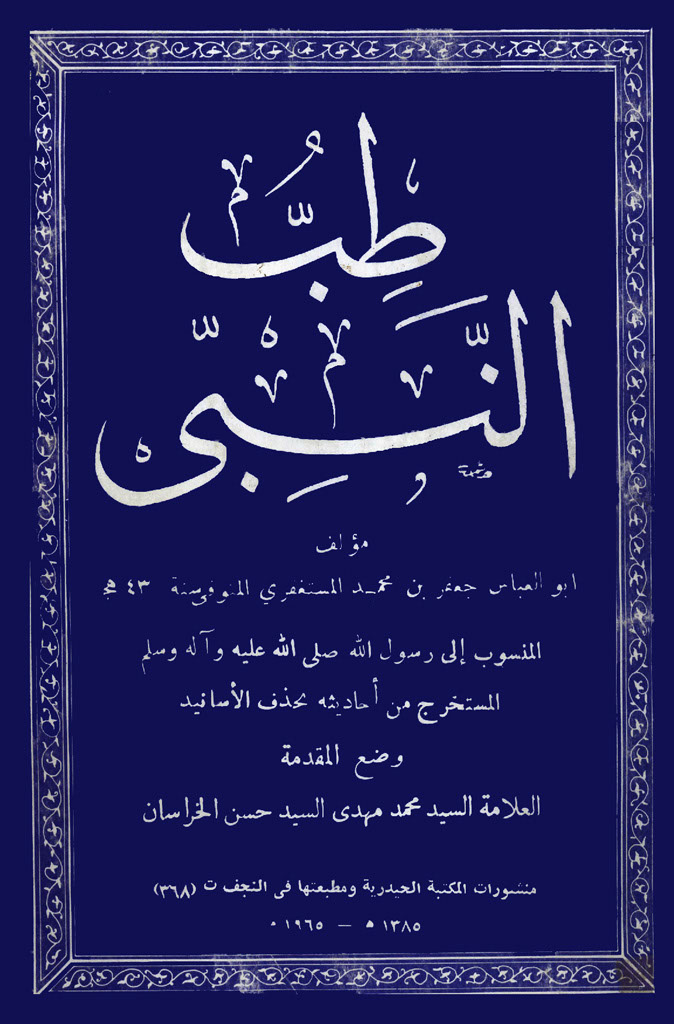 طِبُّ
النَّبِيّ
مؤلف
ابو العباس جعفر بن محمد المستغفري المتوفى سنة ٤٣ هج
المنسوب إلى رسول الله صلى الله عليه وآله وسلم
المستخرج من أحاديثه بحذف الأسانيد
وضع المقدمة
العلامة السيد محمد مهدى السيد حسن الخراسان
منشورات المكتبة الحيدرية ومطبعتها فى النجف ت (٣٦٨)
١٣٨٥ ه – ١٩٦٥ م